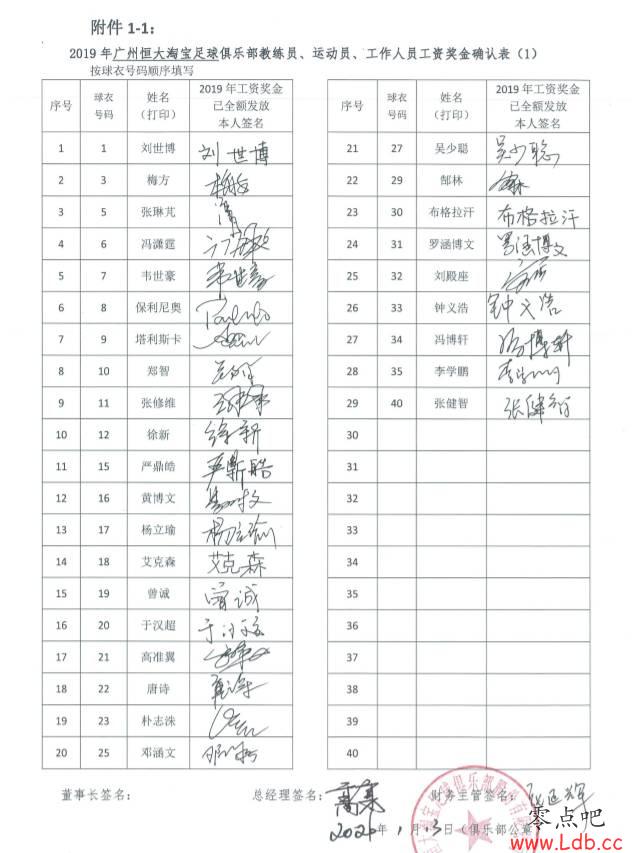 附件 1-1：
2019 年广州恒大淘宝足球俱乐部教练员、运动员、工作人员工资奖金确认表（1）
按球衣号码顺序填写
序号 球衣号码 姓名（打印） 2019 年工资奖金已全额发放本人签名
1 1 刘世博 刘世博
2 3 梅方 梅方
3 5 张琳芃
4 6 冯潇霆
5 7 韦世豪 韦世豪
6 8 保利尼奥
7 9 塔利斯卡
8 10 郑智
9 11 张修维
10 12 徐新 徐新
11 15 严鼎皓 严鼎皓
12 16 黄博文
13 17 杨立瑜 杨立瑜
14 18 艾克森 艾克森
15 19 曾诚 曾诚
16 20 于汉超 于汉超
17 21 高准翼
18 22 唐诗
19 23 朴志洙
20 25 邓涵文
序号 球衣号码 姓名（打印） 2019 年工资奖金已全额发放本人签名
21 27 吴少聪 吴少聪
22 29 郜林
23 30 布格拉汗 布格拉汗
24 31 罗涵博文 罗涵博文
25 32 刘殿座
26 33 钟义浩 钟义浩
27 34 冯博轩 冯博轩
28 35 李学鹏
29 40 张健智 张健智
30
31
32
33
34
35
36
37
38
39
40
董事长签名： 总经理签名： 财务主管签名：
2020 年 1 月 13 日（俱乐部公章）
零点吧
www.Ldb.cc